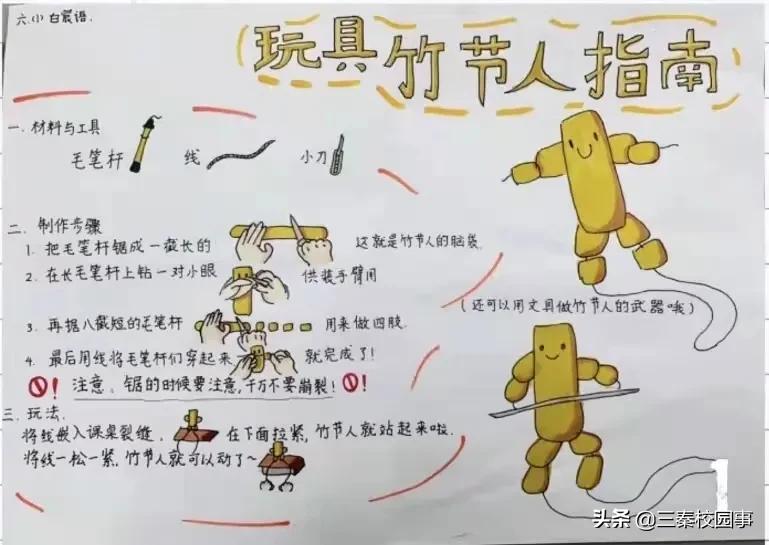 六.(1) 白宸语.
玩具竹节人指南
一. 材料与工具
毛笔杆 线 小刀
二. 制作步骤
1. 把毛笔杆锯成一截长的 这就是竹节人的脑袋.
2. 在长毛笔杆上钻一对小眼 供装手臂用
3. 再掂八截短的毛笔杆 用来做四肢.
4. 最后用线将毛笔杆们穿起来 就完成了!
! 注意、锯的时候要注意,千万不要崩裂! !
三. 玩法.
将线嵌入课桌裂缝. 在下面拉紧,竹节人就站起来啦.
将线一松一紧,竹节人就可以动了~
(还可以用文具做竹节人的武器哦)
1
头条 @三秦校园事